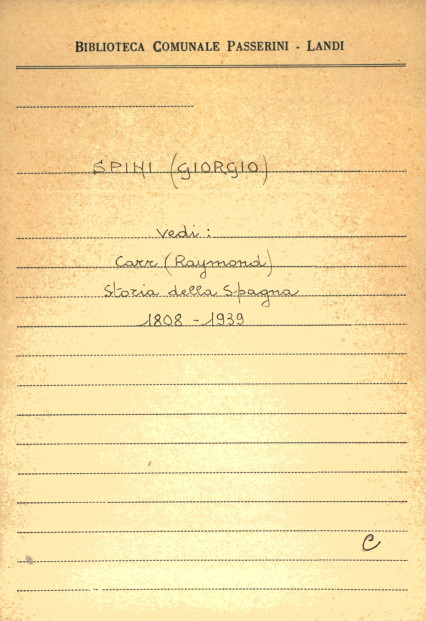 BIBLIOTECA COMUNALE PASSERINI - LANDI
SPINI (GIORGIO)
vedi:
Carr (Raymond)
Storia della Spagna
1808 - 1939
C